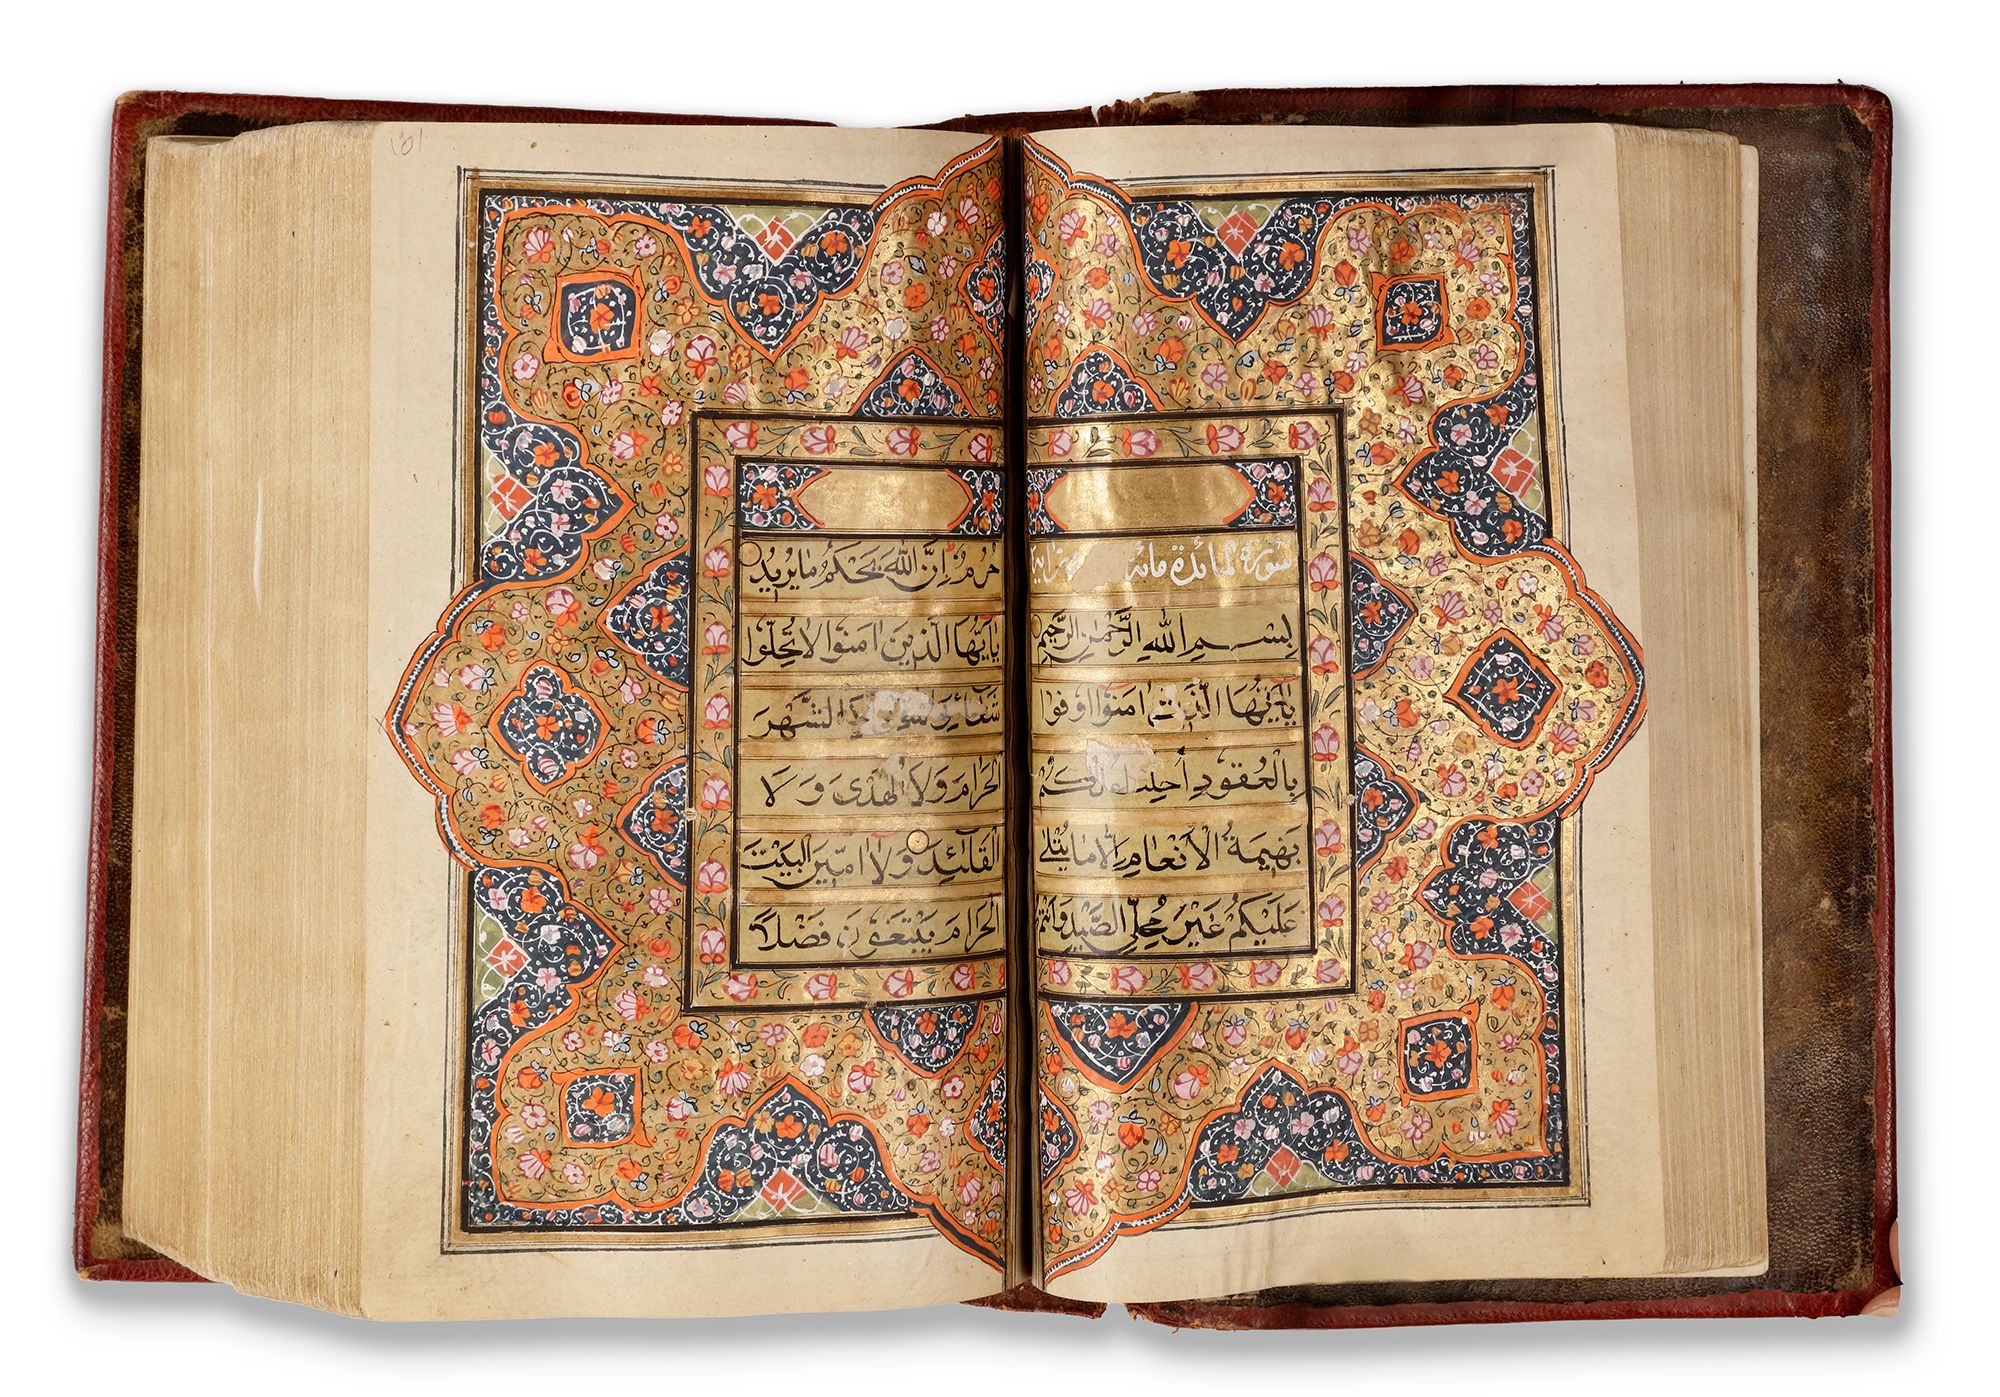 سورة المائدة مائة
بسم الله الرَّحمٰنِ الرَّحيمِ
يٰاَيُّهَا الَّذينَ اٰمَنُوا اَوفُوا
بِالعُقودِ اُحِلَّت لَكُم
بَهيمَةُ الاَنعامِ اِلّا ما يُتلٰى
عَلَيكُم غَيرَ مُحِلِّى الصَّيدِ وَاَنتُم
حُرُمٌ اِنَّ اللّٰهَ يَحكُمُ ما يُريدُ
يٰاَيُّهَا الَّذينَ اٰمَنُوا لا تُحِلّوا
شَعائِرَ الشَّهرَ
الحَرامَ وَلا الهَدىَ وَلا
القَلآئِدَ وَلا اٰمّينَ البَيتَ
الحَرامَ يَبتَغونَ فَضلًا